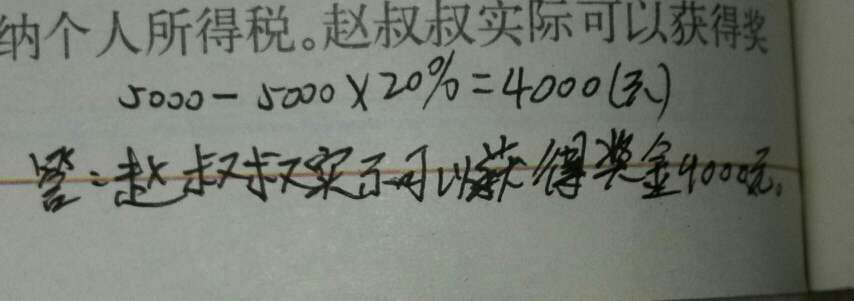 纳个人所得税。赵叔叔实际可以获得奖
5000-5000×20%=4000(元)
答:赵叔叔实示可以获得奖金4000元。